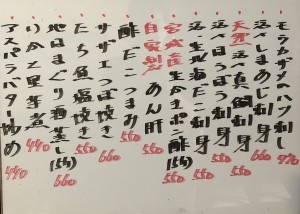 モウカザメハツ刺し 770
活〆しまあじ刺し 660
天然活〆真鯛刺身 550
活〆ほうぼう刺身 550
活〆生水だこ刺身 550
宮城産生かきポン酢(5ヶ) 550
自家製あん肝 550
酢だこつまみ 550
サザエつぼ焼き 660
たちうお塩焼き 550
地はまぐり酒蒸し(5ヶ) 660
いかと里芋煮 440
アスパラバター炒め 440